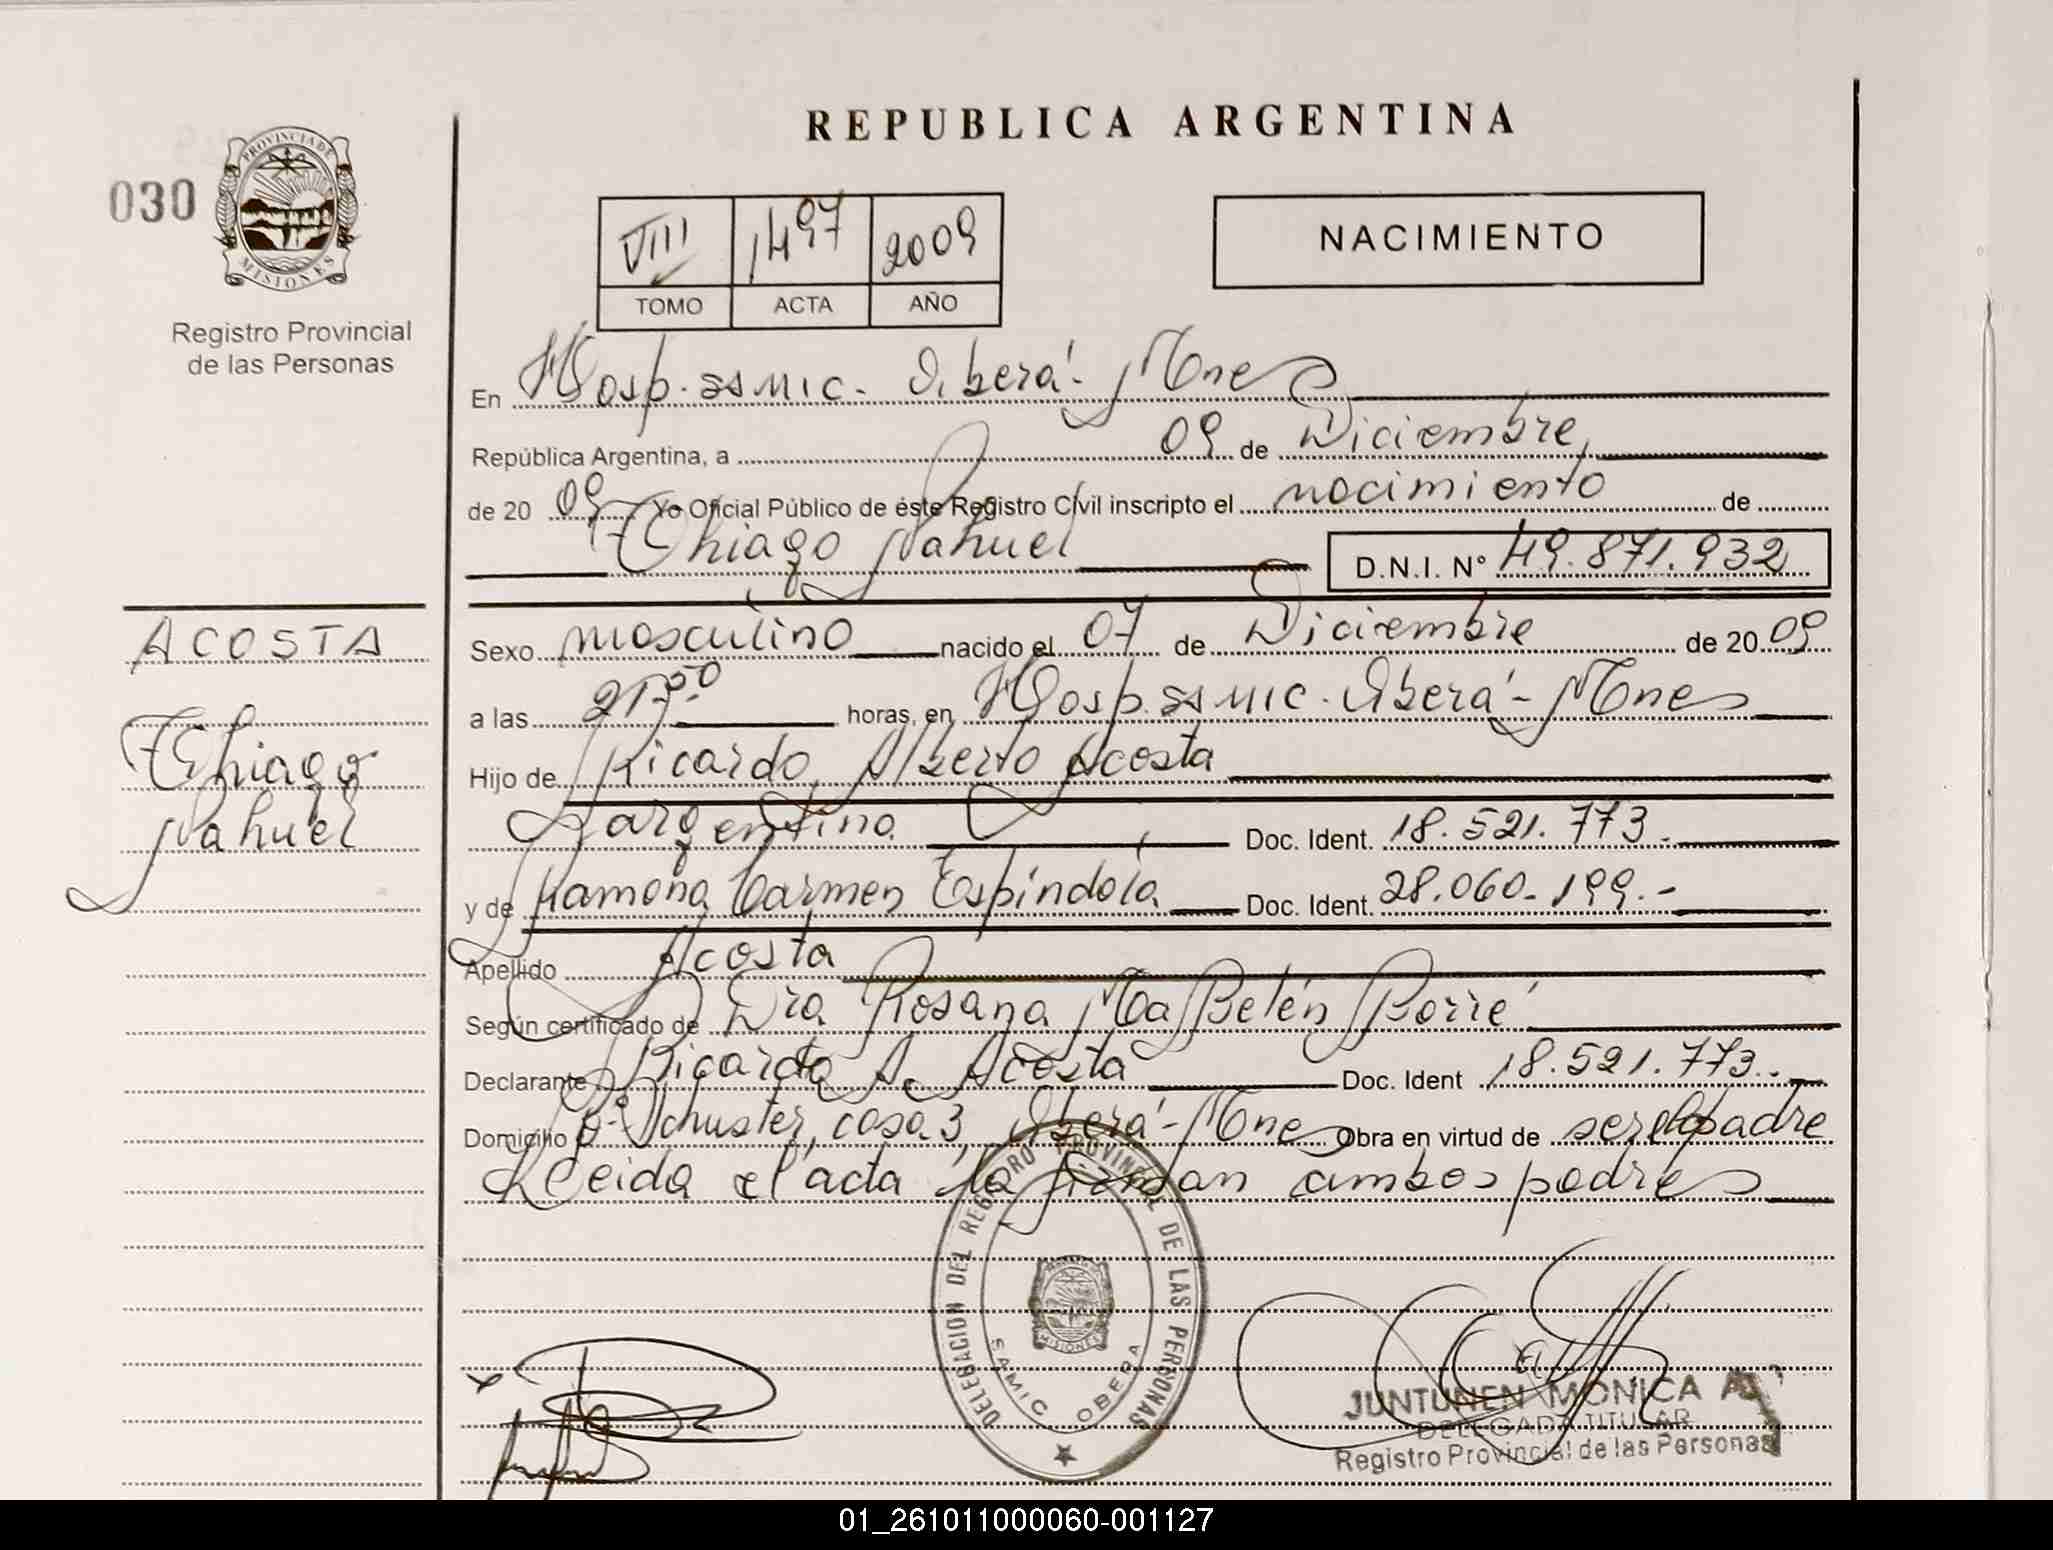 REPUBLICA ARGENTINA
030
PROVINCIA DE
MISIONES
Registro Provincial
de las Personas
VIII 1497 2009
TOMO ACTA AÑO
NACIMIENTO
En Hosp. SAMIC. Oberá - Mnes
República Argentina, a 09 de Diciembre,
de 20 09 Yo Oficial Público de éste Registro Civil inscripto el nacimiento de
Thiago Nahuel D.N.I. N° 49.871.932
ACOSTA
Thiago
Nahuel
Sexo masculino nacido el 07 de Diciembre de 20 09
a las 21,50 horas, en Hosp. SAMIC. Oberá - Mnes
Hijo de Ricardo Alberto Acosta
argentino Doc. Ident. 18.521.773.
y de Ramona Carmen Espíndola Doc. Ident. 28.060.199.-
Apellido Acosta
Según certificado de Dra Rosana Ma Belén Borré
Declarante Ricardo A. Acosta Doc. Ident 18.521.773.
Domicilio Bº Schuster, casa 3, Oberá - Mnes Obra en virtud de ser el padre
Leida el acta la firman ambos padres
DELEGACION DEL REGISTRO PROVINCIAL DE LAS PERSONAS
MISIONES
SAMIC OBERA
JUNTUNEN MONICA A.
DELEGADA TITULAR
Registro Provincial de las Personas
01_261011000060-001127